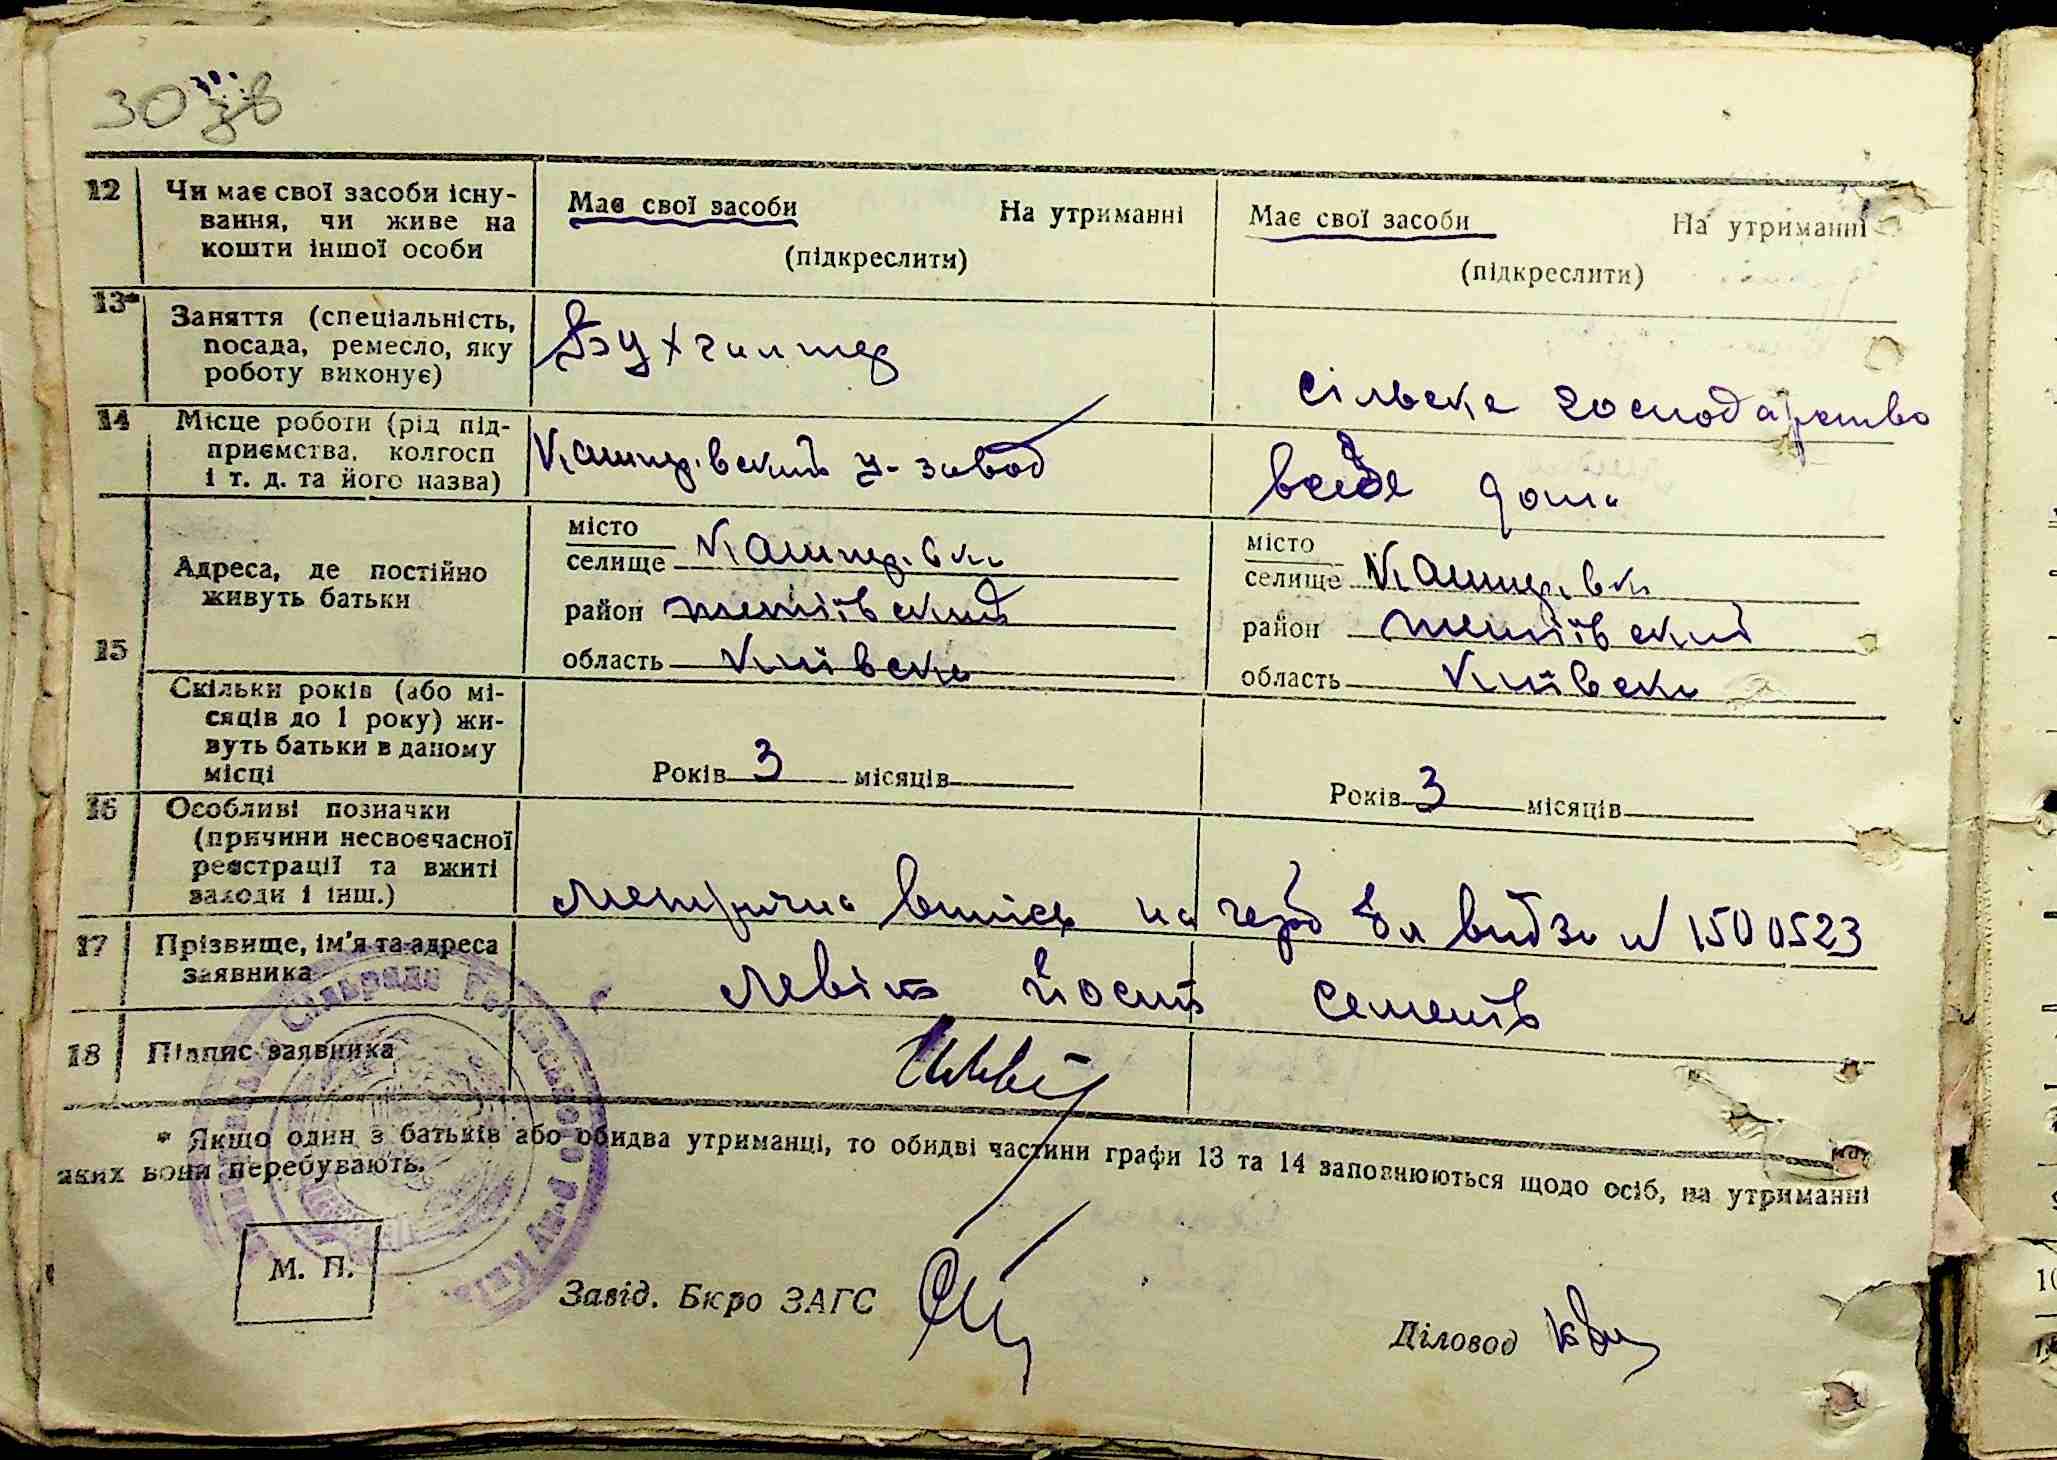 30 зв
12 Чи має свої засоби існу-
вання, чи живе на
кошти іншої особи
Має свої засоби На утриманні
(підкреслити)
Має свої засоби На утриманні
(підкреслити)
13* Заняття (спеціальність,
посада, ремесло, яку
роботу виконує)
Бухгалтер
сільське господарство
14 Місце роботи (рід під-
приємства, колгосп
і т. д. та його назва)
Кашперівский ц-завод
веде дома
15 Адреса, де постійно
живуть батьки
місто
селище Кашперівка
район тетіївский
область Київська
місто
селище Кашперівка
район тетіївский
область Київська
Скільки років (або мі-
сяців до 1 року) жи-
вуть батьки в даному
місці
Років 3 місяців
Років 3 місяців
16 Особливі позначки
(причини несвоєчасної
реєстрації та вжиті
заходи і інш.)
метрична випись на видана № 1500523
17 Прізвище, ім'я та адреса
заявника
Левіт Йосип Семенів
18 Підпис заявника
* Якщо один з батьків або обидва утриманці, то обидві частини графи 13 та 14 заповнюються щодо осіб, на утриманні
яких вони перебувають.
Сільрада Тетіївського р-ну Київ
М. П.
Завід. Бюро ЗАГС
Діловод